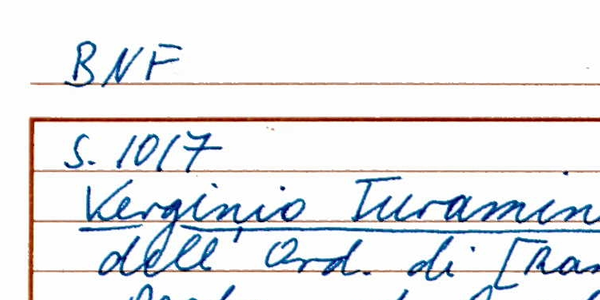 BNF
S. 1017
Verginio Turamin
dell' Ord. di [Ran